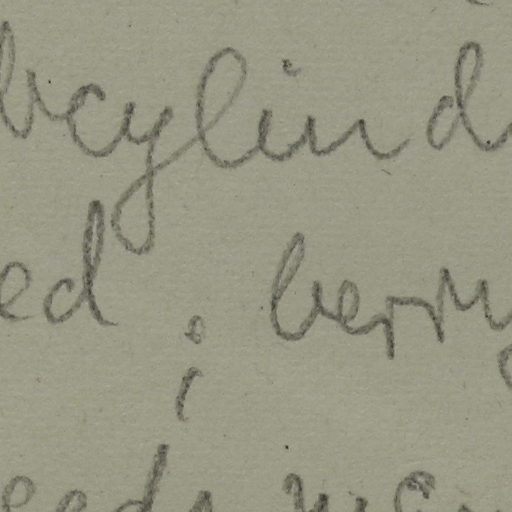 bcylind
ed; berry
eeds